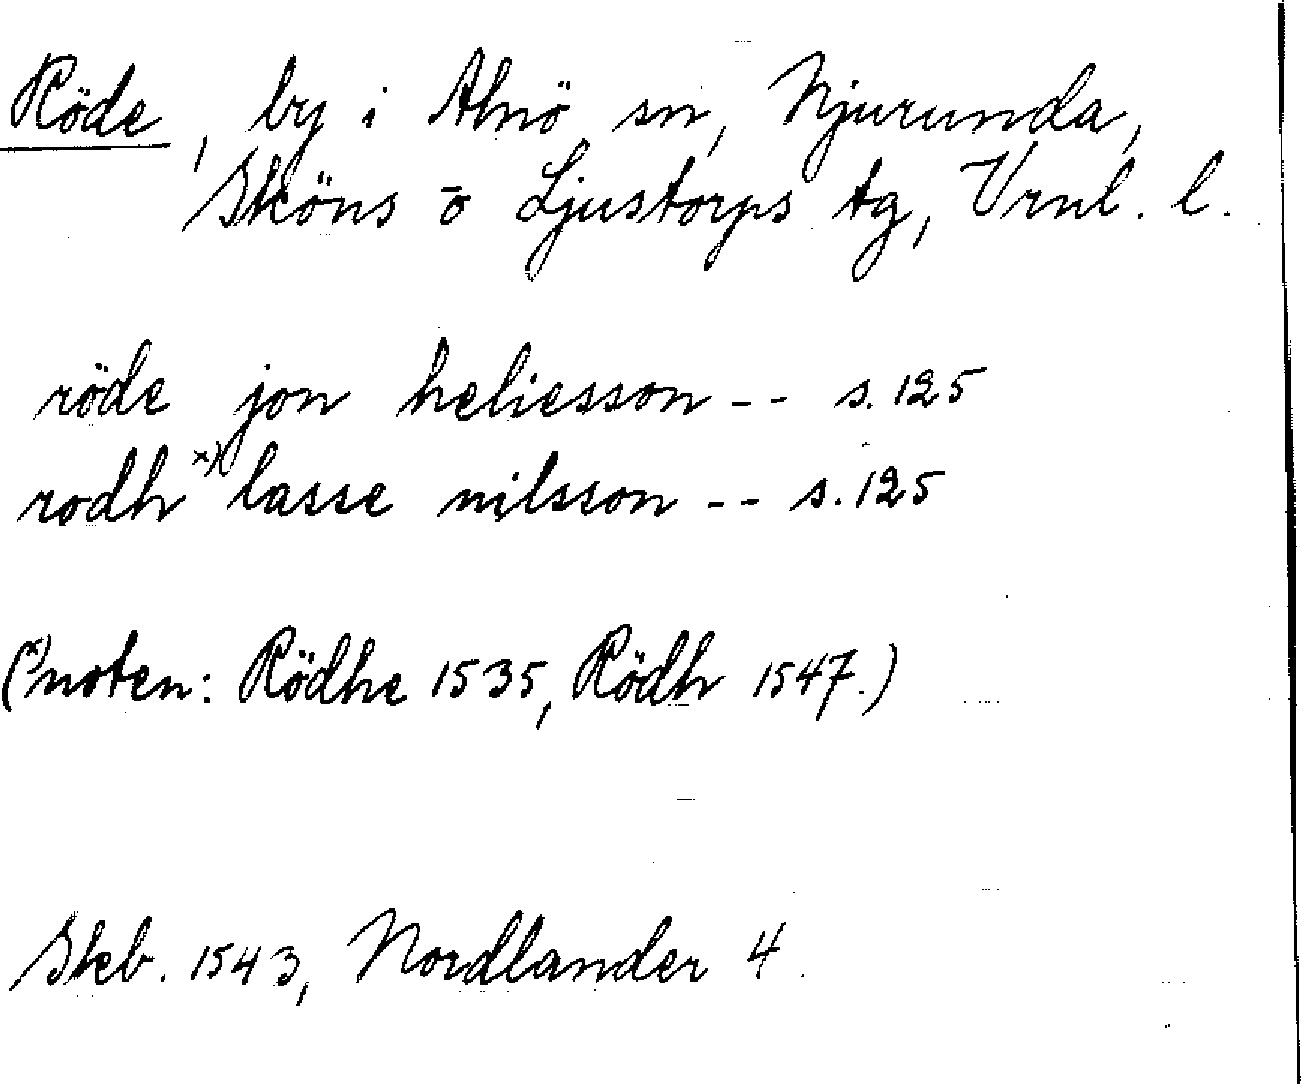 Röde, by i Alnö sn, Njurunda,
Sköns o Ljustorps tg, Vrnl. l.
röde jon heliesson -- s. 125
rodh x) lasse nilsson -- s. 125
(x) noten: Rödhe 1535, Rödh 1547.)
Skb. 1543, Nordlander 4.